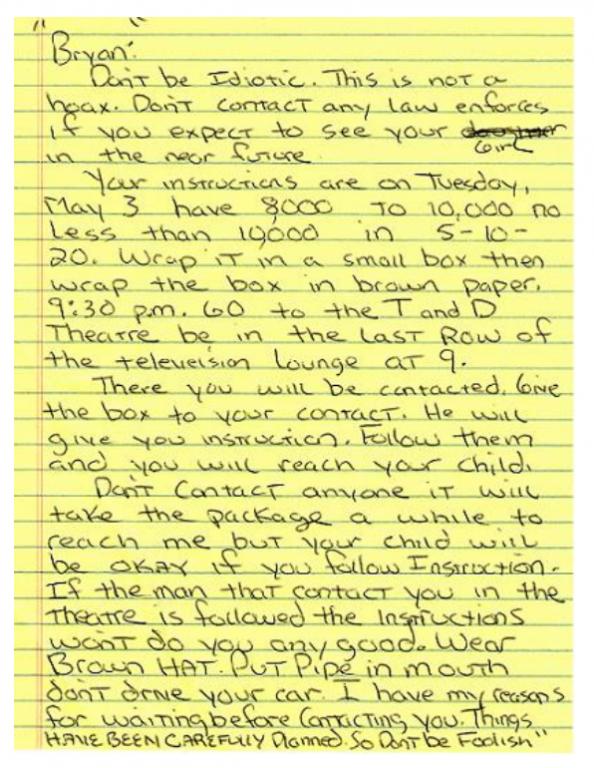 " "
Bryan:
Don't be Idiotic. This is not a
hoax. Don't contact any law enforces
if you expect to see your daughter
Girl
in the near future
Your instructions are on Tuesday,
May 3 have 8000 to 10,000 no
less than 10,000 in 5-10-
20. Wrap it in a small box then
wrap the box in brown paper.
9:30 p.m. Go to the T and D
Theatre be in the last Row of
the televeision lounge at 9.
There you will be contacted. Give
the box to your contact. He will
give you instruction. Follow them
and you will reach your child.
Don't Contact anyone it will
take the package a while to
reach me but your child will
be OKAY if you follow Instruction.
If the man that contact you in the
theatre is followed the Instructions
won't do you any good. Wear
Brown HAT. Put Pipe in mouth
don't drive your car. I have my reasons
for waiting before Conticting you. Things
HAVE BEEN CAREFULLY Planned. So Dont be Foolish"